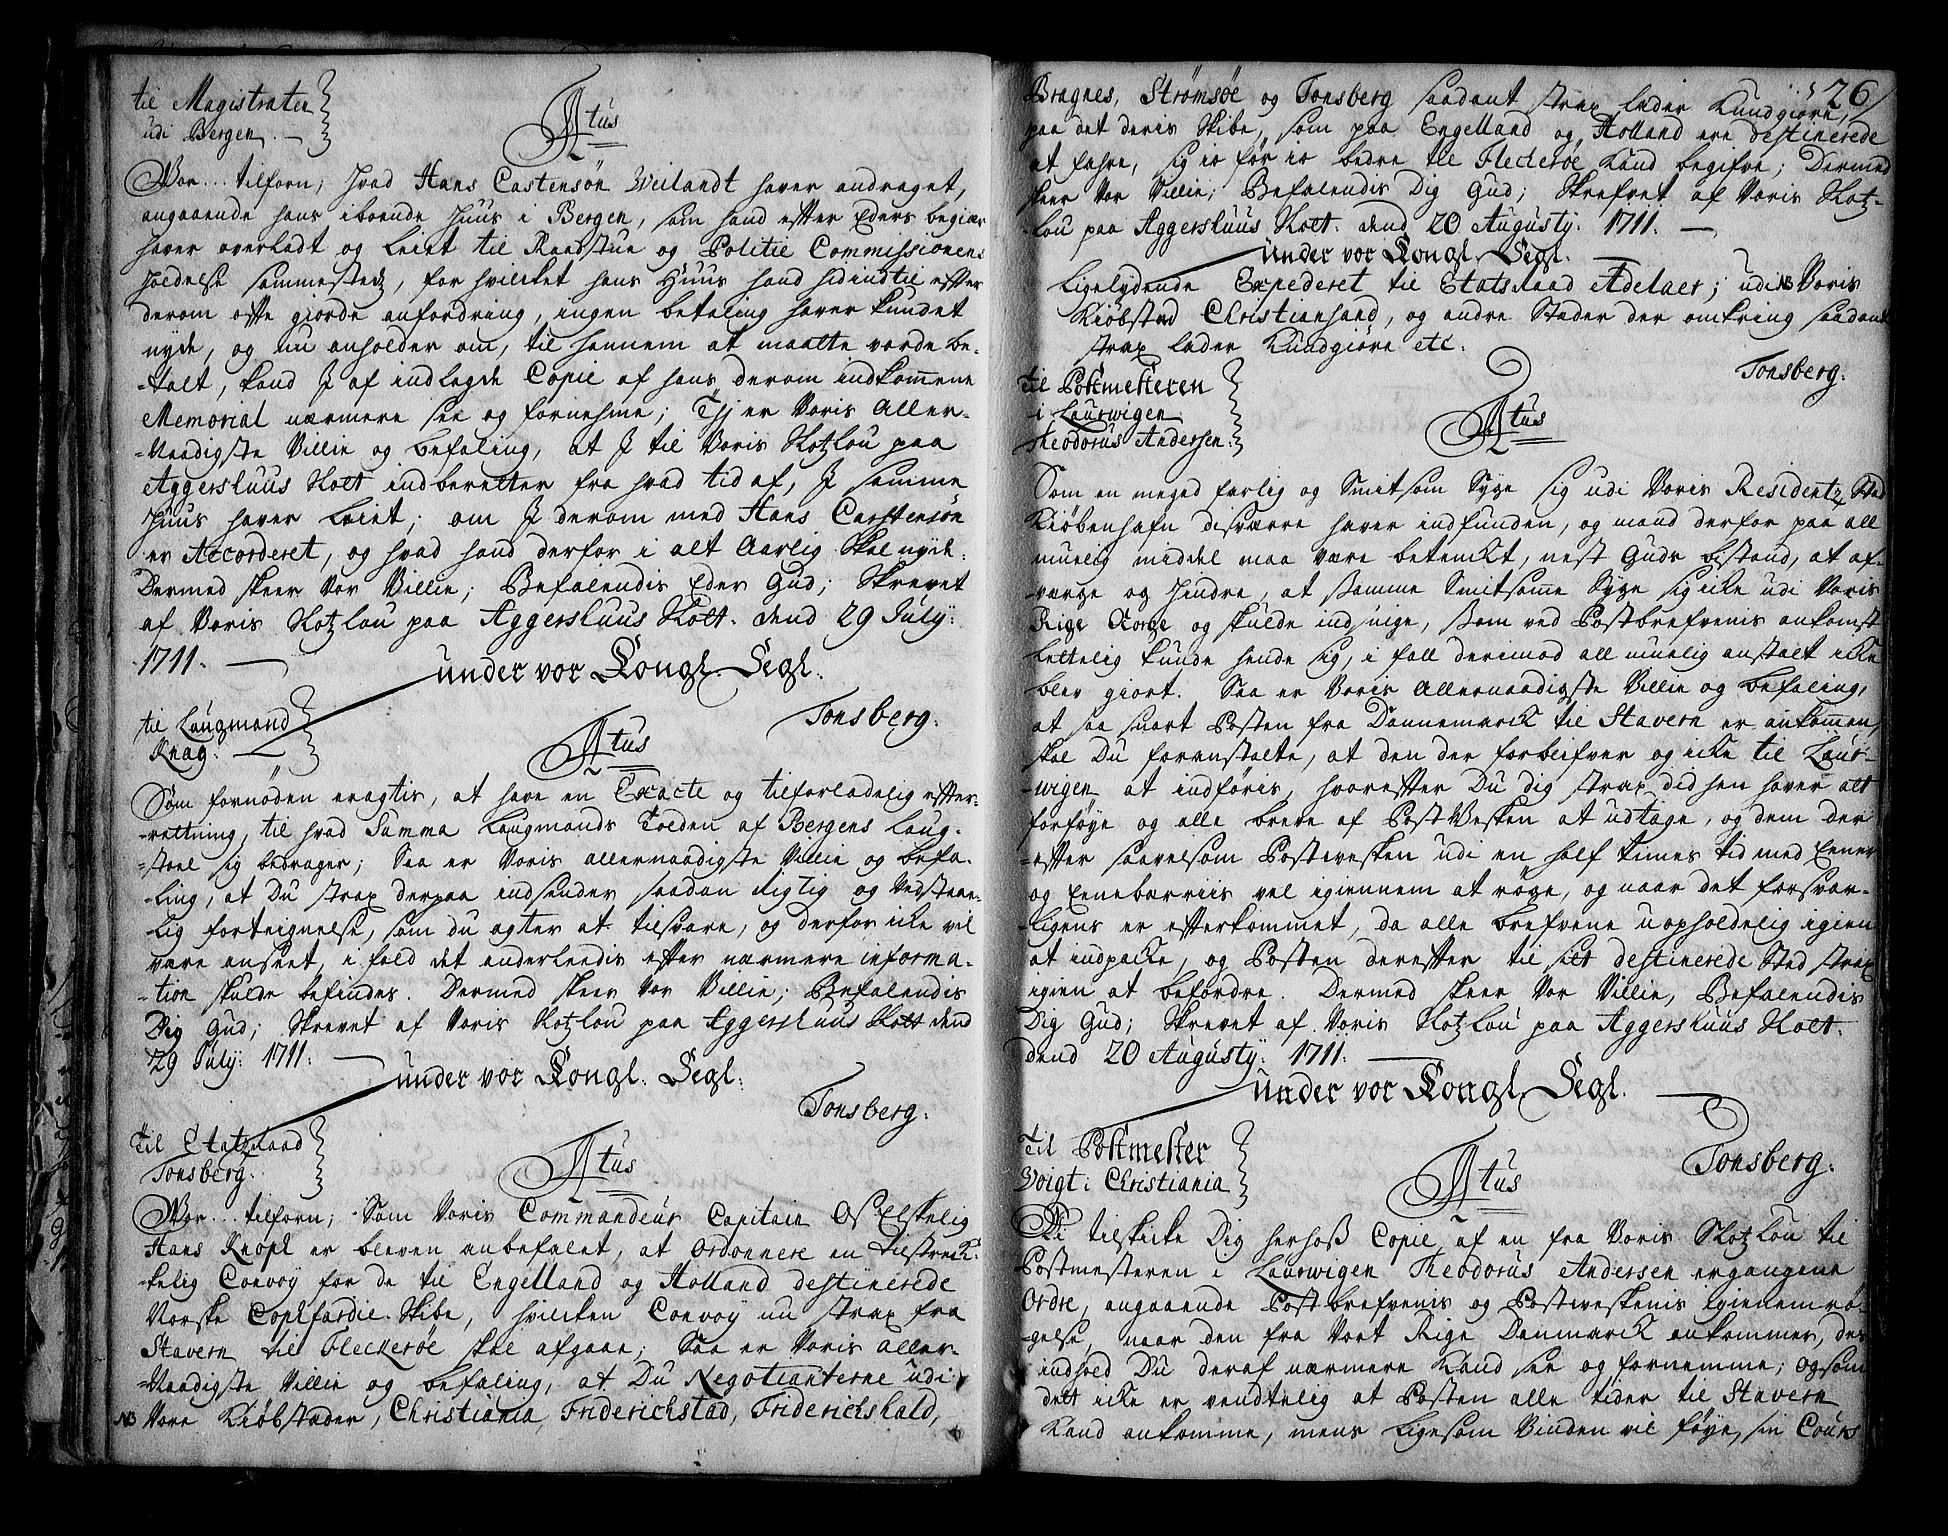 til Magistraten
udi Bergen. –
Atus
Vor . . . tilforn; hvad Hans Castensøn Weilandt haver andraget,
angaaende hans iboende Huus i Bergen, som hand efter Eders begiær
haver overladt og leiet til Raadstue og Politie Commissionens
holdelse sammesteds, for hvilchet hans Huus hand hidindtil efter
derom ofte giorde anfordring, ingen betaling haver kundet
nyde, og nu anholder om, til hannem at maatte vorde be-
-talt, kand J af indlagde Copie af hans derom indkomne
Memorial nærmere see og fornehme; Thj er Voris Aller-
-Naadigste Villie og befaling, at J til Voris Slotzlou paa
Aggershuus Slott indberetter fra hvad tid af, J samme
Huus haver leiet; om J derom med Hans Carstensøn
er Accorderet, og hvad hand derfor i alt Aarlig skal nyde.
Dermed skeer Vor Villie; Befalendis Eder Gud; Skrevet
af Voris Slotzlou paa Aggershuus Slott. dend 29 July:
1711. –
under vor Kongl. Segl.
Tonsberg.
til Laugmand
Knag. –
Atus
Som fornøden eragtis, at have en Exacte og tilforladelig efter-
-rettning, til hvad Summa Laugmands Tolden af Bergens Laug-
-stoel sig bedrager; Saa er Voris allernaadigste Villie og befa-
-ling, at Du strax derpaa indsender saadan Rigtig og Vedstaae-
-lig forteignelse, som du agter at tilsvare, og derfor icke vil
være anseet, i fald det anderleedis efter nærmere informa-
-tion skulde befindes. Dermed skeer Vor Villie; Befalendis
Dig Gud; Skrevet af Voris Slotzlou paa Aggershuus Slott dend
29 July: 1711. –
under vor Kongl. Segl.
Tonsberg.
Til Etatzraad
Tonsberg.
Atus
Vor . . . tilforn; Som Voris Commandeur Capitain Os Elskelig
Hans Knoph er bleven anbefalet, at Ordonnere en tilstreck-
-kelig Convoy for de til Engelland og Holland destinerede
Norske Copfardie Skibe, hvilcken Convoy nu strax fra
Stavern til Fleckerøe skal afgaae; Saa er Voris aller-
-Naadigste Villie og befaling, at Du Negotianterne udi
NB Vore Kiøbstæder, Christiania, Friderichstad, Friderichshald,
26
Bragnes, Strømsøe og Tonsberg saadant strax lader Kundgiøre,
paa det deris Skibe, som paa Engelland og Holland ere destinerede
at fahre, sig io før io bedre til Fleckerøe Kand begifve; Dermed
skeer Vor Villie; Befalendis Dig Gud; Skrefvet af Voris Slotz-
-lou paa Aggershuus Slott. dend 20 Augusty. 1711. –
under vor Kongl. Segl.
Ligelydende Expederet til Etatsraad Adelaer; udi NB Voris
Kiøbstad Christiansand, og andre Stæder der omkring saadant
strax lader Kundgiøre etc.
Tonsberg.
Til Postmesteren
i Laurwigen
Theodorus Andersen.
Atus
Som en meged farlig og Smitsom Syge sig udi Voris Residentz Stad
Kiøbenhafn disværre haver indfunden, og mand derfor paa all
muelig middel maa være betenckt, nest Guds bistand, at af-
-værge og hindre, at samme Smitsomme Syge sig icke udi Voris
Rige Norge og skulde indsnige, som ved Postbrefvenis ankomst
lettelig kunde hende sig, i fall derimod all muelig anstalt icke
blev giort. Saa er Voris Allernaadigste Villie og befaling,
at saa snart Posten fra Dannemarck til Stavern er ankommen,
skal Du foranstalte, at den der forbeifver og icke til Laur-
-wigen at indføris, hvorefter Du dig strax did hen haver alt
forføye og alle breve af PostVesken at udtage, og dem der
-efter saavelsom Postvesken udi en half times tid med Eener
og Eenebærriis vel igiennem at røge, og naar det forsvar-
-ligens er efterkommet, da alle brefvene uopholdelig igien
at indpacke, og Posten derefter til sit destinerede Sted strax
igien at befordre. Dermed skeer Vor Villie, Befalendis
Dig Gud; Skrevet af Voris Slotzlou paa Aggershuus Slott.
dend 20 Augusty. 1711. –
under vor Kongl. Segl.
Tonsberg.
Til Postmester
Voigt i Christiania
Atus
Vi tilskicke Dig herhoß Copie af en fra Voris Slotzlou til
Postmesteren i Laurwigen Theodorus Andersen ergangene
Ordre, angaaende Postbrefvenis og Postveskenis igienemrø-
gelse, naar den fra Vort Rige Danmarck ankommer, des
indhold Du deraf nærmere Kand see og fornemme; og som
dett icke er vendtelig at Posten alle tider til Stavern
Kand ankomme, mens ligesom Vinden vil føye, sin Cours